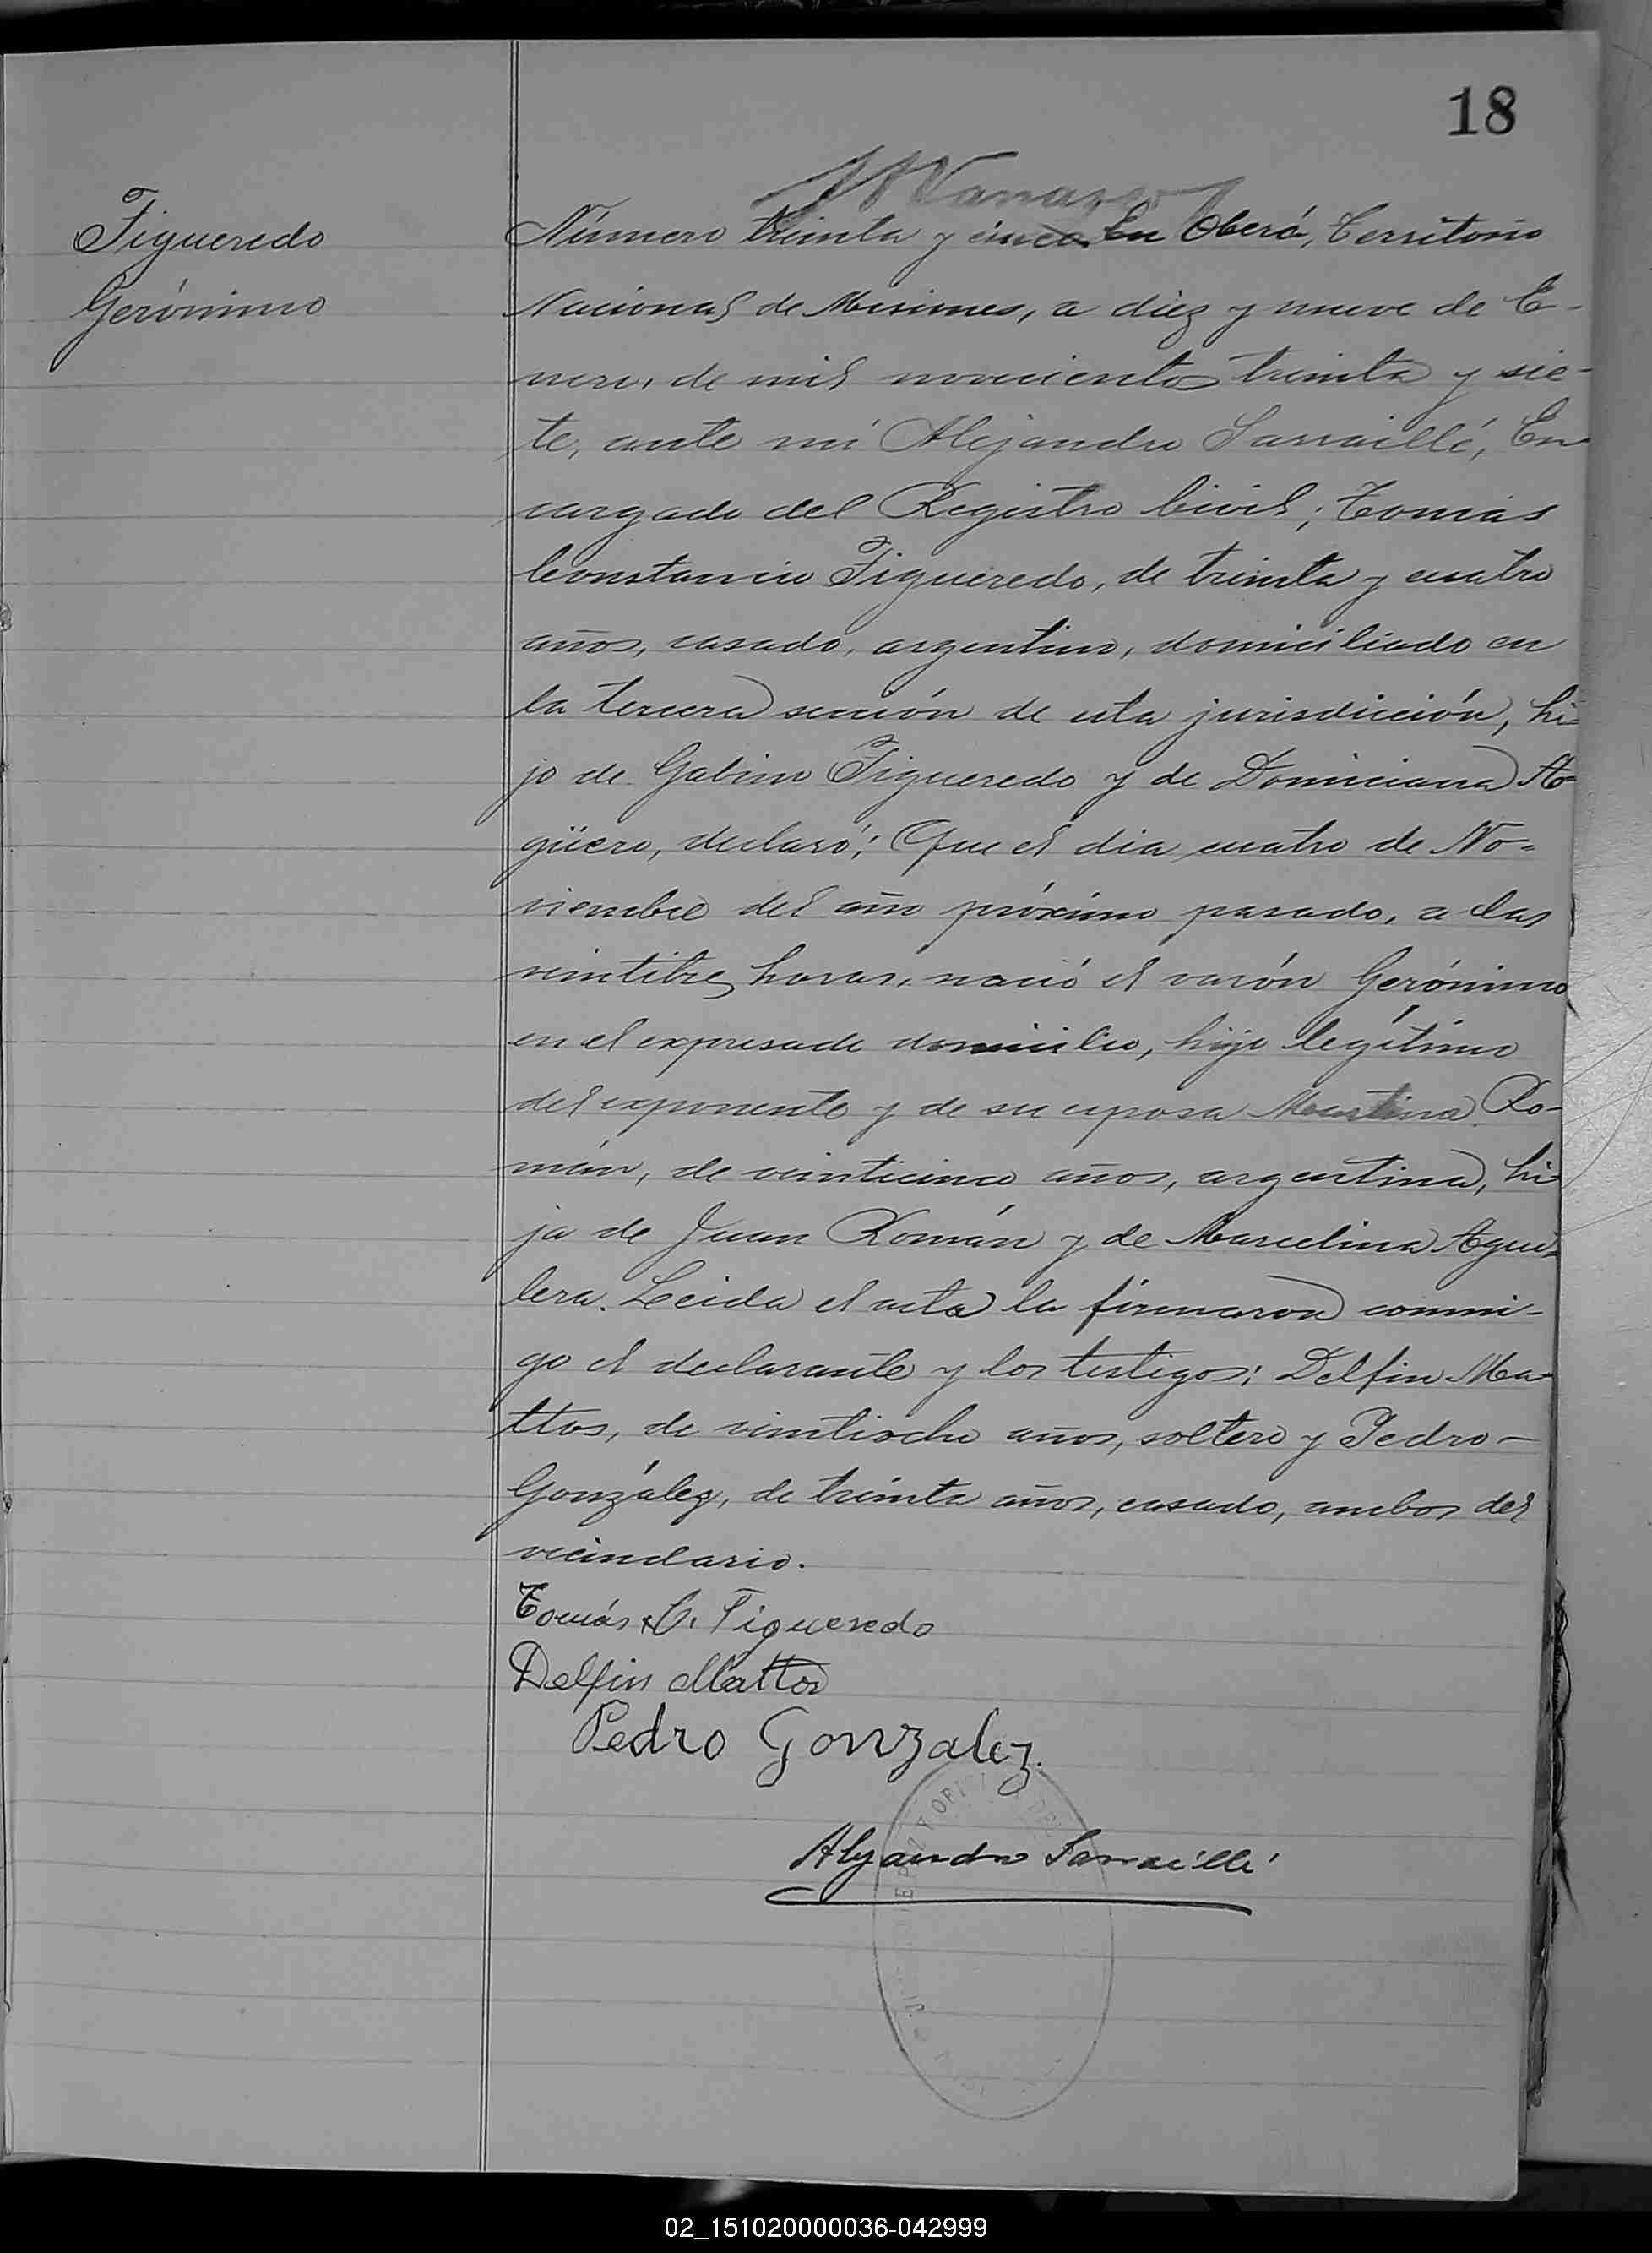 18
Figueredo
Gerónimo
Número treinta y cinco. En Oberá, Territorio
Nacional de Misiones, a diez y nueve de E-
nero, de mil novecientos treinta y sie-
te, ante mí Alejandro Sarraillé, En
cargado del Registro Civil; Tomás
Constancio Figueredo, de treinta y cuatro
años, casado, argentino, domiciliado en
la tercera sección de esta jurisdicción, hi-
jo de Gabino Figueredo y de Domiciana A-
güero, declaró: Que el dia cuatro de No-
viembre del año próximo pasado, a las
veintitres horas, nació el varón Gerónimo
en el expresado domicilio, hijo legítimo
del exponente y de su esposa Martina Ro-
mán, de veinticinco años, argentina, hi-
ja de Juan Román y de Marcelina Agui-
lera. Leida el acta la firmaron conmi-
go el declarante y los testigos: Delfin Ma-
ttos, de veintiocho años, soltero y Pedro-
González, de treinta años, casado, ambos del
vecindario.
Tomás C. Figueredo
Delfin Mattos
Pedro Gonzalez.
Alejandro Sarraillé
02_151020000036-042999